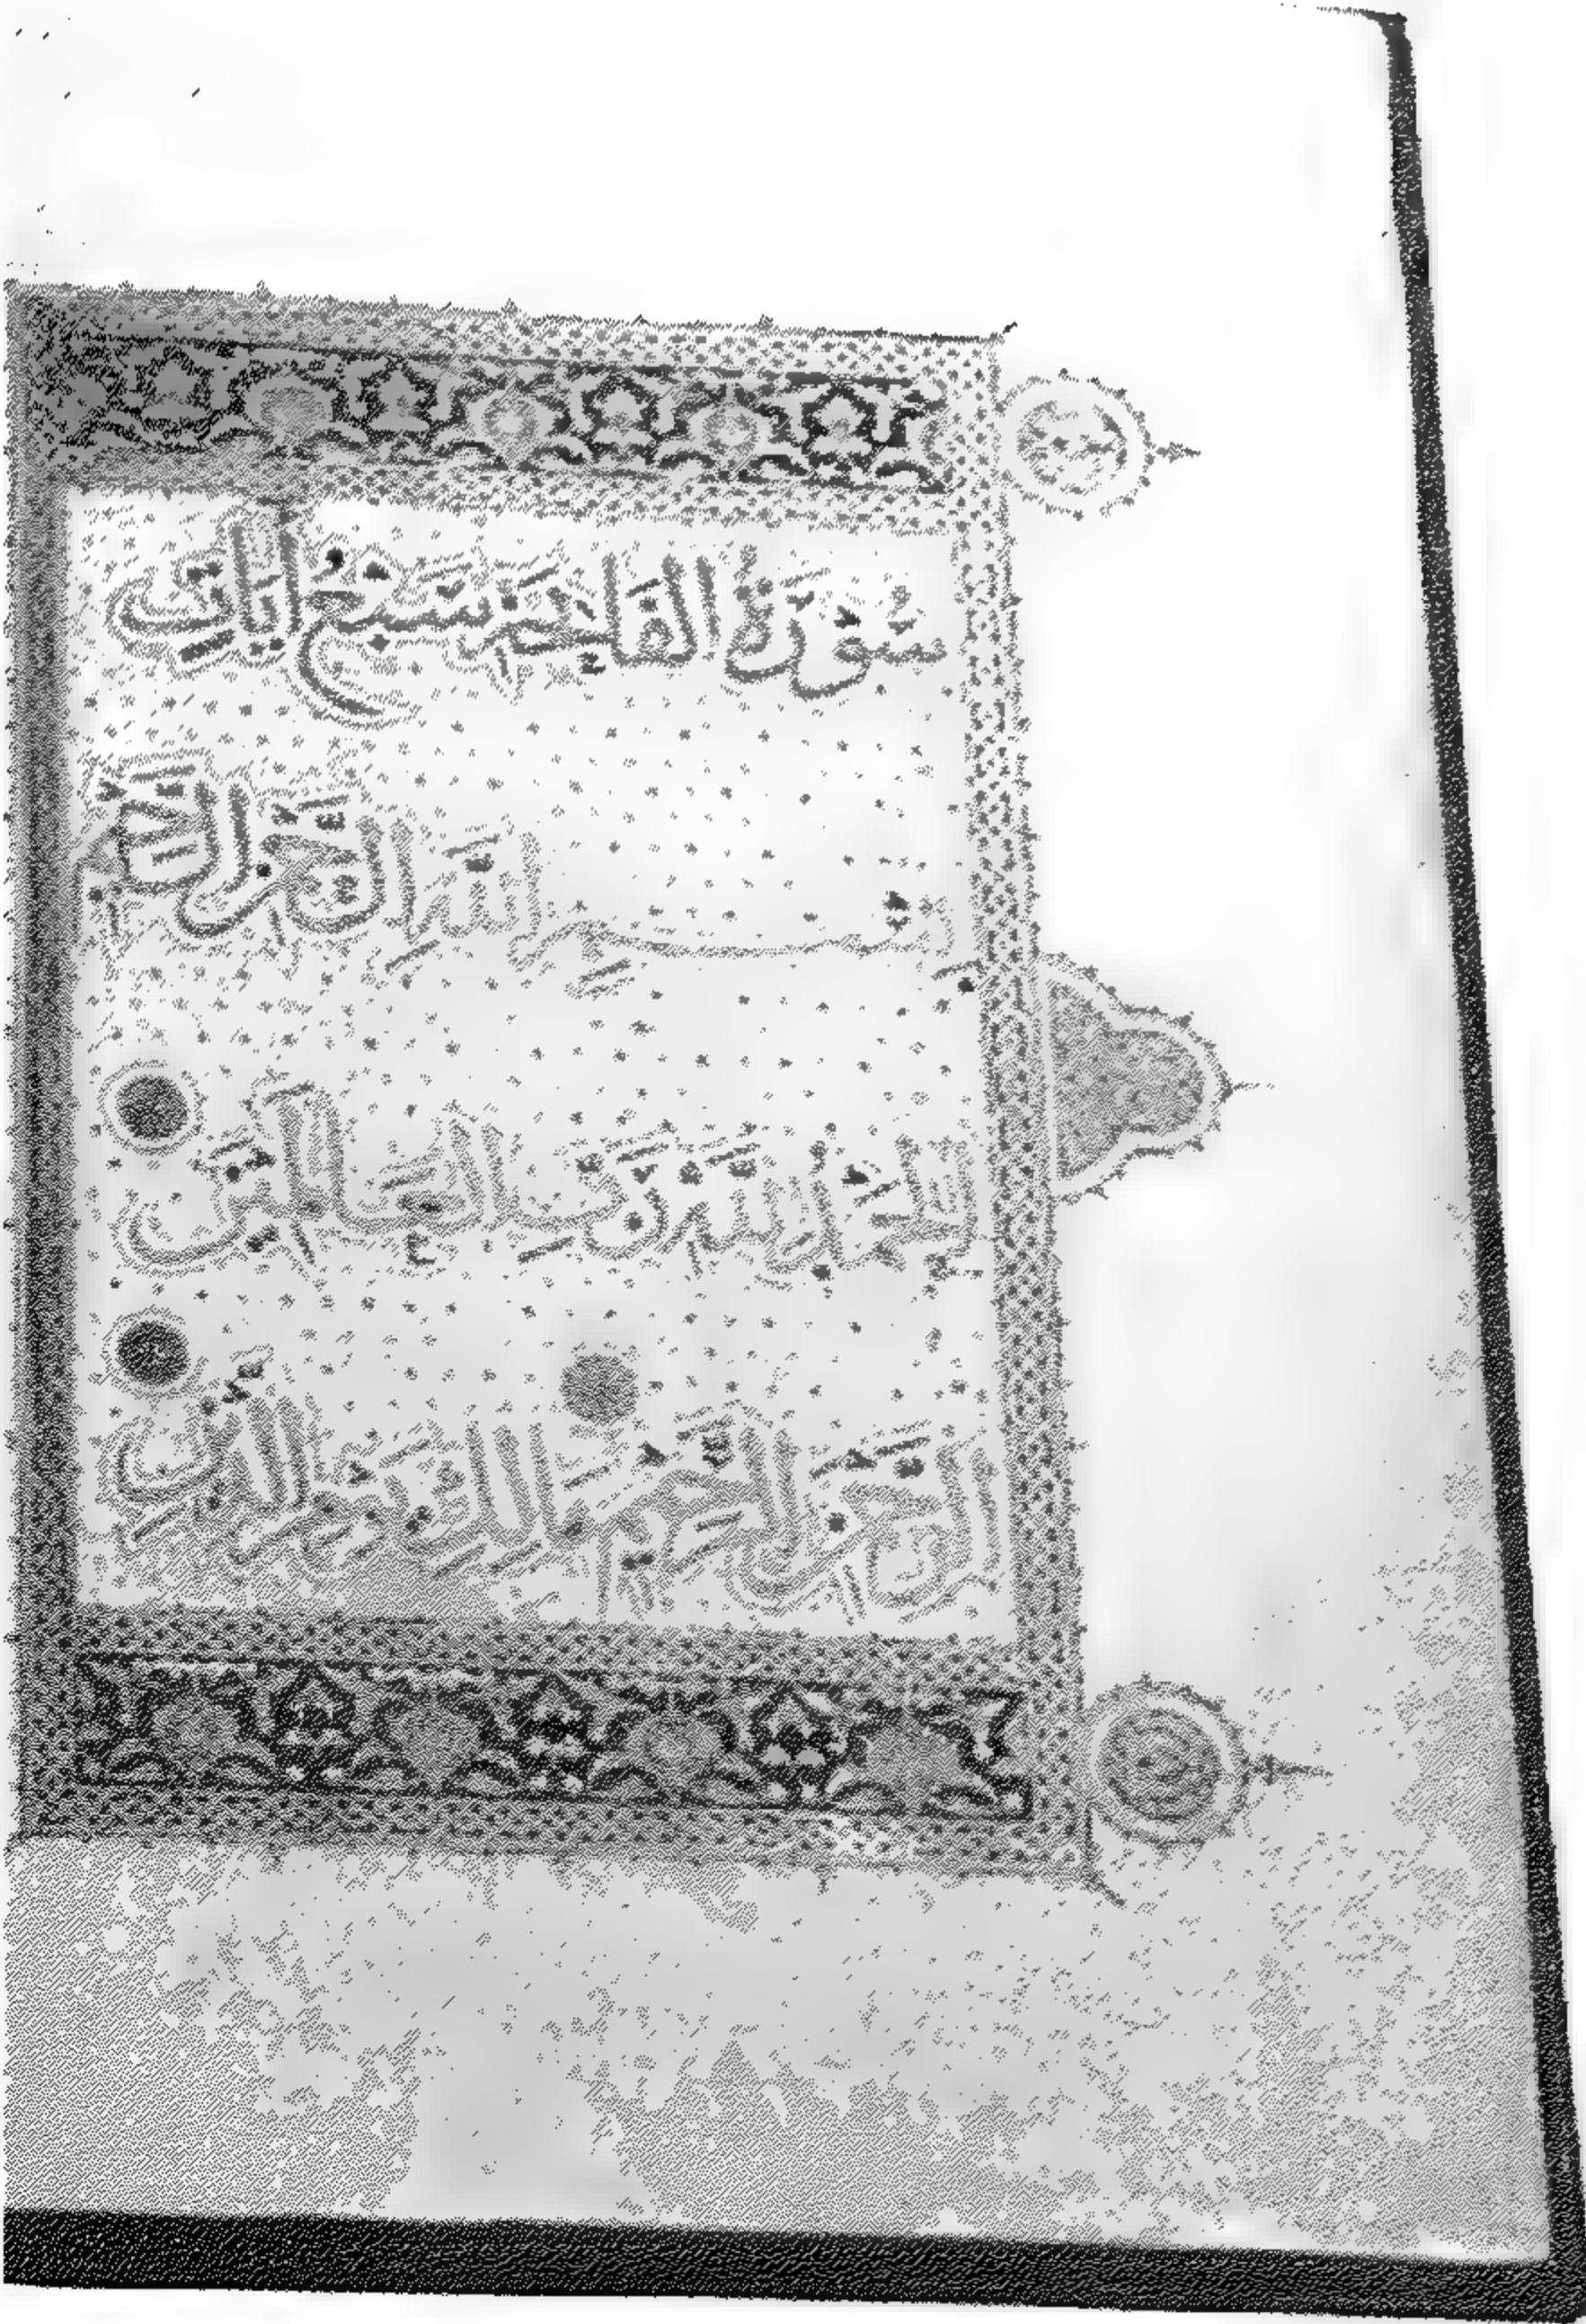 سورة الفاتحة سبع آيات
بسم الله الرحمن الرحيم
الحمد لله رب العالمين
الرحمن الرحيم ملك يوم الدين